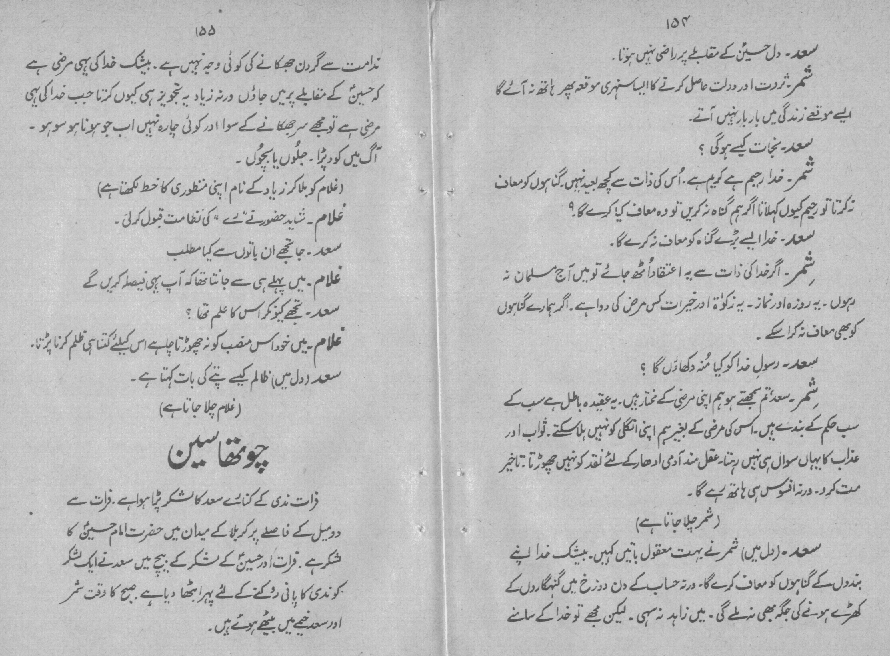 ۱۵۴
سعد۔ دل حسینؑ کے مقابلے پر راضی نہیں ہوتا۔
شمر۔ ثروت اور دولت حاصل کرنے کا ایسا سنہری موقعہ پھر ہاتھ نہ آئے گا
ایسے موقعے زندگی میں بار بار نہیں آتے۔
سعد۔ نجات کیسے ہوگی ؟
شمر۔ خدا رحیم ہے کریم ہے۔ اُس کی ذات سے کچھ بعید نہیں۔ گناہوں کو معاف
نہ کرتا تو رحیم کیوں کہلاتا اگر ہم گناہ نہ کریں تو وہ معاف کیا کرے گا۔؟
سعد۔ خدا ایسے بڑے گناہ کو معاف نہ کرے گا۔
شمر۔ اگر خدا کی ذات سے یہ اعتقاد اُٹھ جائے تو میں آج مسلمان نہ
رہوں۔ یہ روزہ اور نماز۔ یہ زکوٰۃ اور خیرات کس مرض کی دوا ہے۔ اگر ہمارے گناہوں
کو بھی معاف نہ کرا سکے۔
سعد۔ رسولِ خدا کو کیا مُنہ دکھاؤں گا ؟
شمر۔ سعد تم سمجھتے ہو ہم اپنی مرضی کے مختار ہیں۔ یہ عقیدہ باطل ہے سب کے
سب حکم کے بندے ہیں۔ اس کی مرضی کے بغیر ہم اپنی انگلی کو نہیں ہلا سکتے۔ ثواب اور
عذاب کا یہاں سوال ہی نہیں رہتا۔ عقل مند آدمی ادھار کے لئے نقد کو نہیں چھوڑتا۔ تاخیر
مت کرو۔ ورنہ افسوس ہی ہاتھ رہے گا۔
(شمر چلا جاتا ہے)
سعد۔ (دل میں) شمر نے بہت معقول باتیں کہیں۔ بیشک خدا اپنے
بندوں کے گناہوں کو معاف کرے گا۔ ورنہ حساب کے دن دوزخ میں گنہگاروں کے
کھڑے ہونے کی جگہ بھی نہ ملے گی۔ میں زاہد نہ سہی۔ لیکن مجھے تو خدا کے سامنے
۱۵۵
ندامت سے گردن جھکانے کی کوئی وجہ نہیں ہے۔ بیشک خدا کی یہی مرضی ہے
کہ حسینؑ کے مقابلے پر میں جاؤں ورنہ زیاد یہ تجویز ہی کیوں کرتا جب خدا کی یہی
مرضی ہے تو مجھے سر جھکانے کے سوا اور کوئی چارہ نہیں اب جو ہونا ہو سو ہو۔
آگ میں کود پڑا۔ جلوں یا بچوں۔
(غلام کو بلا کر زیاد کے نام اپنی منظوری کا خط لکھتا ہے)
غلام۔ شاید حضور نے "رے" کی نظامت قبول کرلی۔
سعد۔ جا تجھے ان باتوں سے کیا مطلب
غلام۔ میں پہلے ہی سے جانتا تھا کہ آپ یہی فیصلہ کریں گے
سعد۔ تجھے کیونکر اس کا علم تھا ؟
غلام۔ میں خود اس منصب کو نہ چھوڑتا چاہے اس کیلئے کتنا ہی ظلم کرنا پڑتا۔
سعد (دل میں) ظالم کیسے پتے کی بات کہتا ہے۔
(غلام چلا جاتا ہے)
چوتھا سین
فرات ندی کے کنارے سعد کا لشکر پڑا ہوا ہے۔ فرات سے
دو میل کے فاصلے پر کربلا کے میدان میں حضرت امام حسینؑ کا
لشکر ہے۔ فرات اور حسینؑ کے لشکر کے بیچ میں سعد نے ایک لشکر
کو ندی کا پانی روکنے کے لئے پہرا بٹھا دیا ہے۔ صبح کا وقت شمر
اور سعد خیمے میں بیٹھے ہوئے ہیں۔